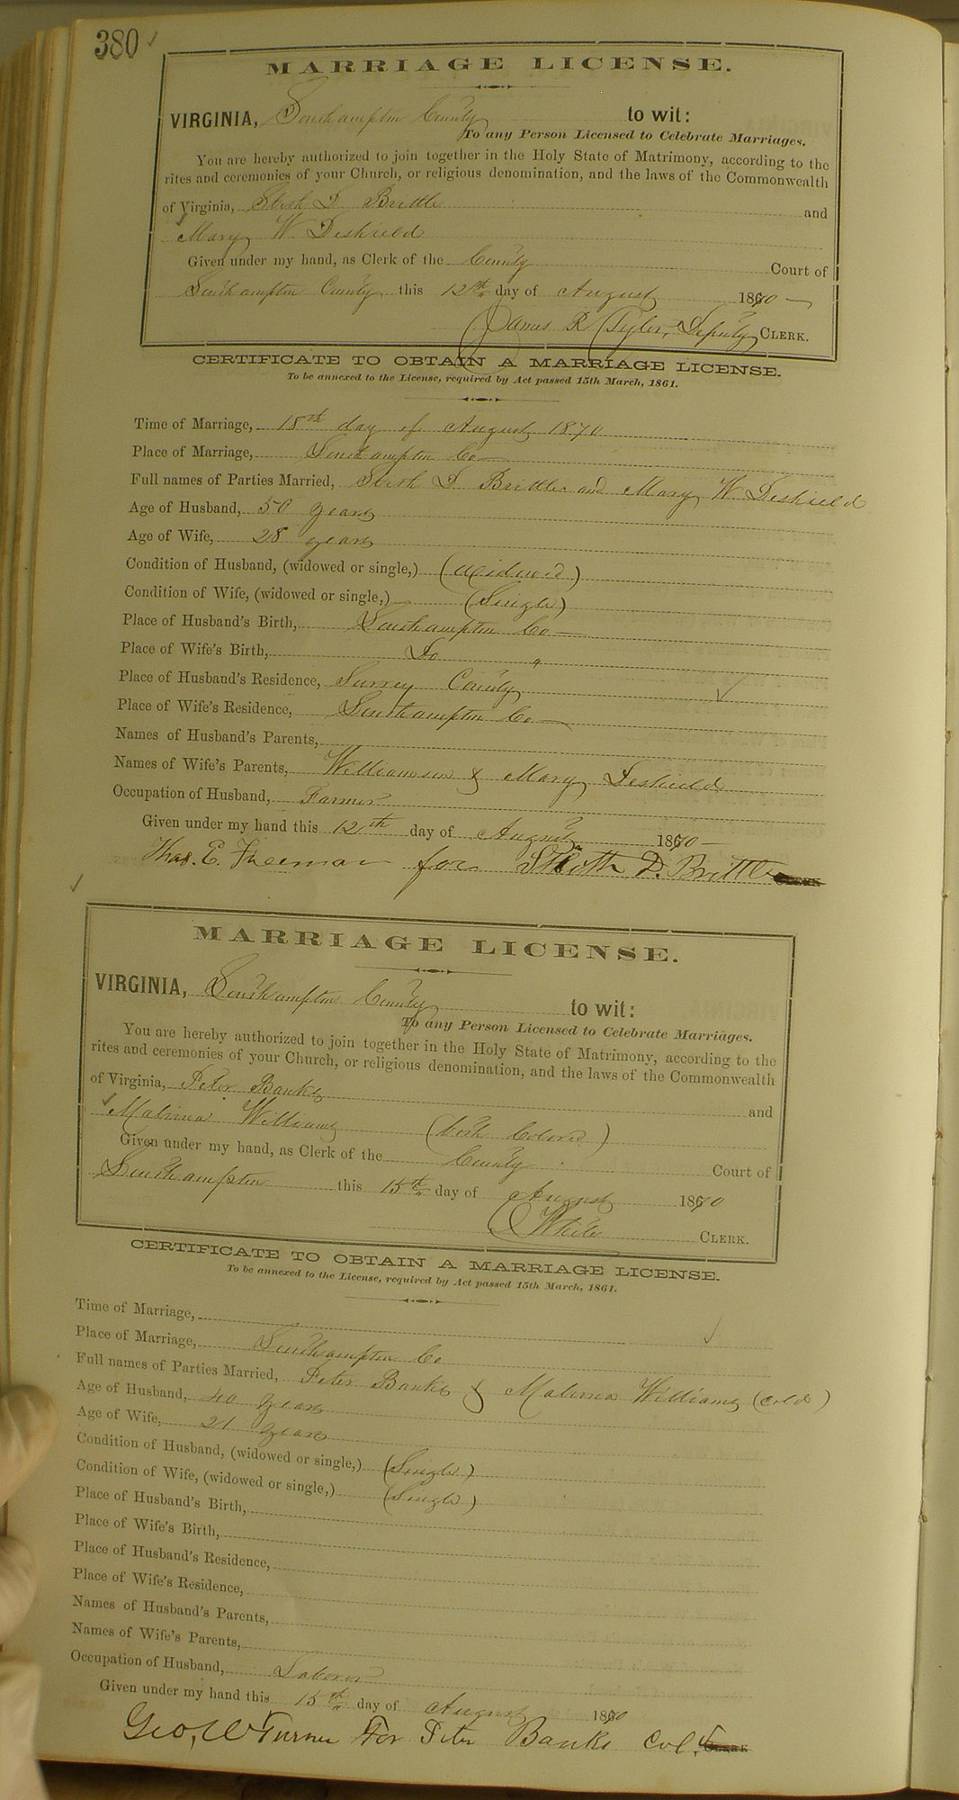 380
MARRIAGE LICENSE.
VIRGINIA, Southampton County to wit:
To any Person Licensed to Celebrate Marriages.
You are hereby authorized to join together in the Holy State of Matrimony, according to the
rites and ceremonies of your Church, or religious denomination, and the laws of the Commonwealth
of Virginia, Brittle and
Mary W. Deshield
Given under my hand, as Clerk of the County Court of
Southampton County this 12th day of August 1870
James R Tyler, Deputy CLERK.
CERTIFICATE TO OBTAIN A MARRIAGE LICENSE.
To be annexed to the License, required by Act passed 15th March, 1861.
Time of Marriage, 18th day of August 1870
Place of Marriage, Southampton Co
Full names of Parties Married, Brittle and Mary W Deshield
Age of Husband, 50 years
Age of Wife, 28 years
Condition of Husband, (widowed or single,) (Widowed)
Condition of Wife, (widowed or single,) (Single)
Place of Husband's Birth, Southampton Co
Place of Wife's Birth, Do "
Place of Husband's Residence, Surrey County
Place of Wife's Residence, Southampton Co
Names of Husband's Parents,
Names of Wife's Parents, Williamson & Mary Deshield
Occupation of Husband, Farmer
Given under my hand this 12th day of August 1870
Thos. E. Freeman for D. Brittle CLERK
MARRIAGE LICENSE.
VIRGINIA, Southampton County to wit:
To any Person Licensed to Celebrate Marriages.
You are hereby authorized to join together in the Holy State of Matrimony, according to the
rites and ceremonies of your Church, or religious denomination, and the laws of the Commonwealth
of Virginia, Peter Banks and
Malvina Williams (both Colored)
Given under my hand, as Clerk of the County Court of
Southampton this 15th day of August 1870
White CLERK.
CERTIFICATE TO OBTAIN A MARRIAGE LICENSE.
To be annexed to the License, required by Act passed 15th March, 1861.
Time of Marriage,
Place of Marriage, Southampton Co
Full names of Parties Married, Peter Banks & Malvina Williams (cold)
Age of Husband, 40 years
Age of Wife, 21 years
Condition of Husband, (widowed or single,) (Single)
Condition of Wife, (widowed or single,) (Single)
Place of Husband's Birth,
Place of Wife's Birth,
Place of Husband's Residence,
Place of Wife's Residence,
Names of Husband's Parents,
Names of Wife's Parents,
Occupation of Husband, Laborer
Given under my hand this 15th day of August 1870
Geo, W Turner For Peter Banks Col. CLERK